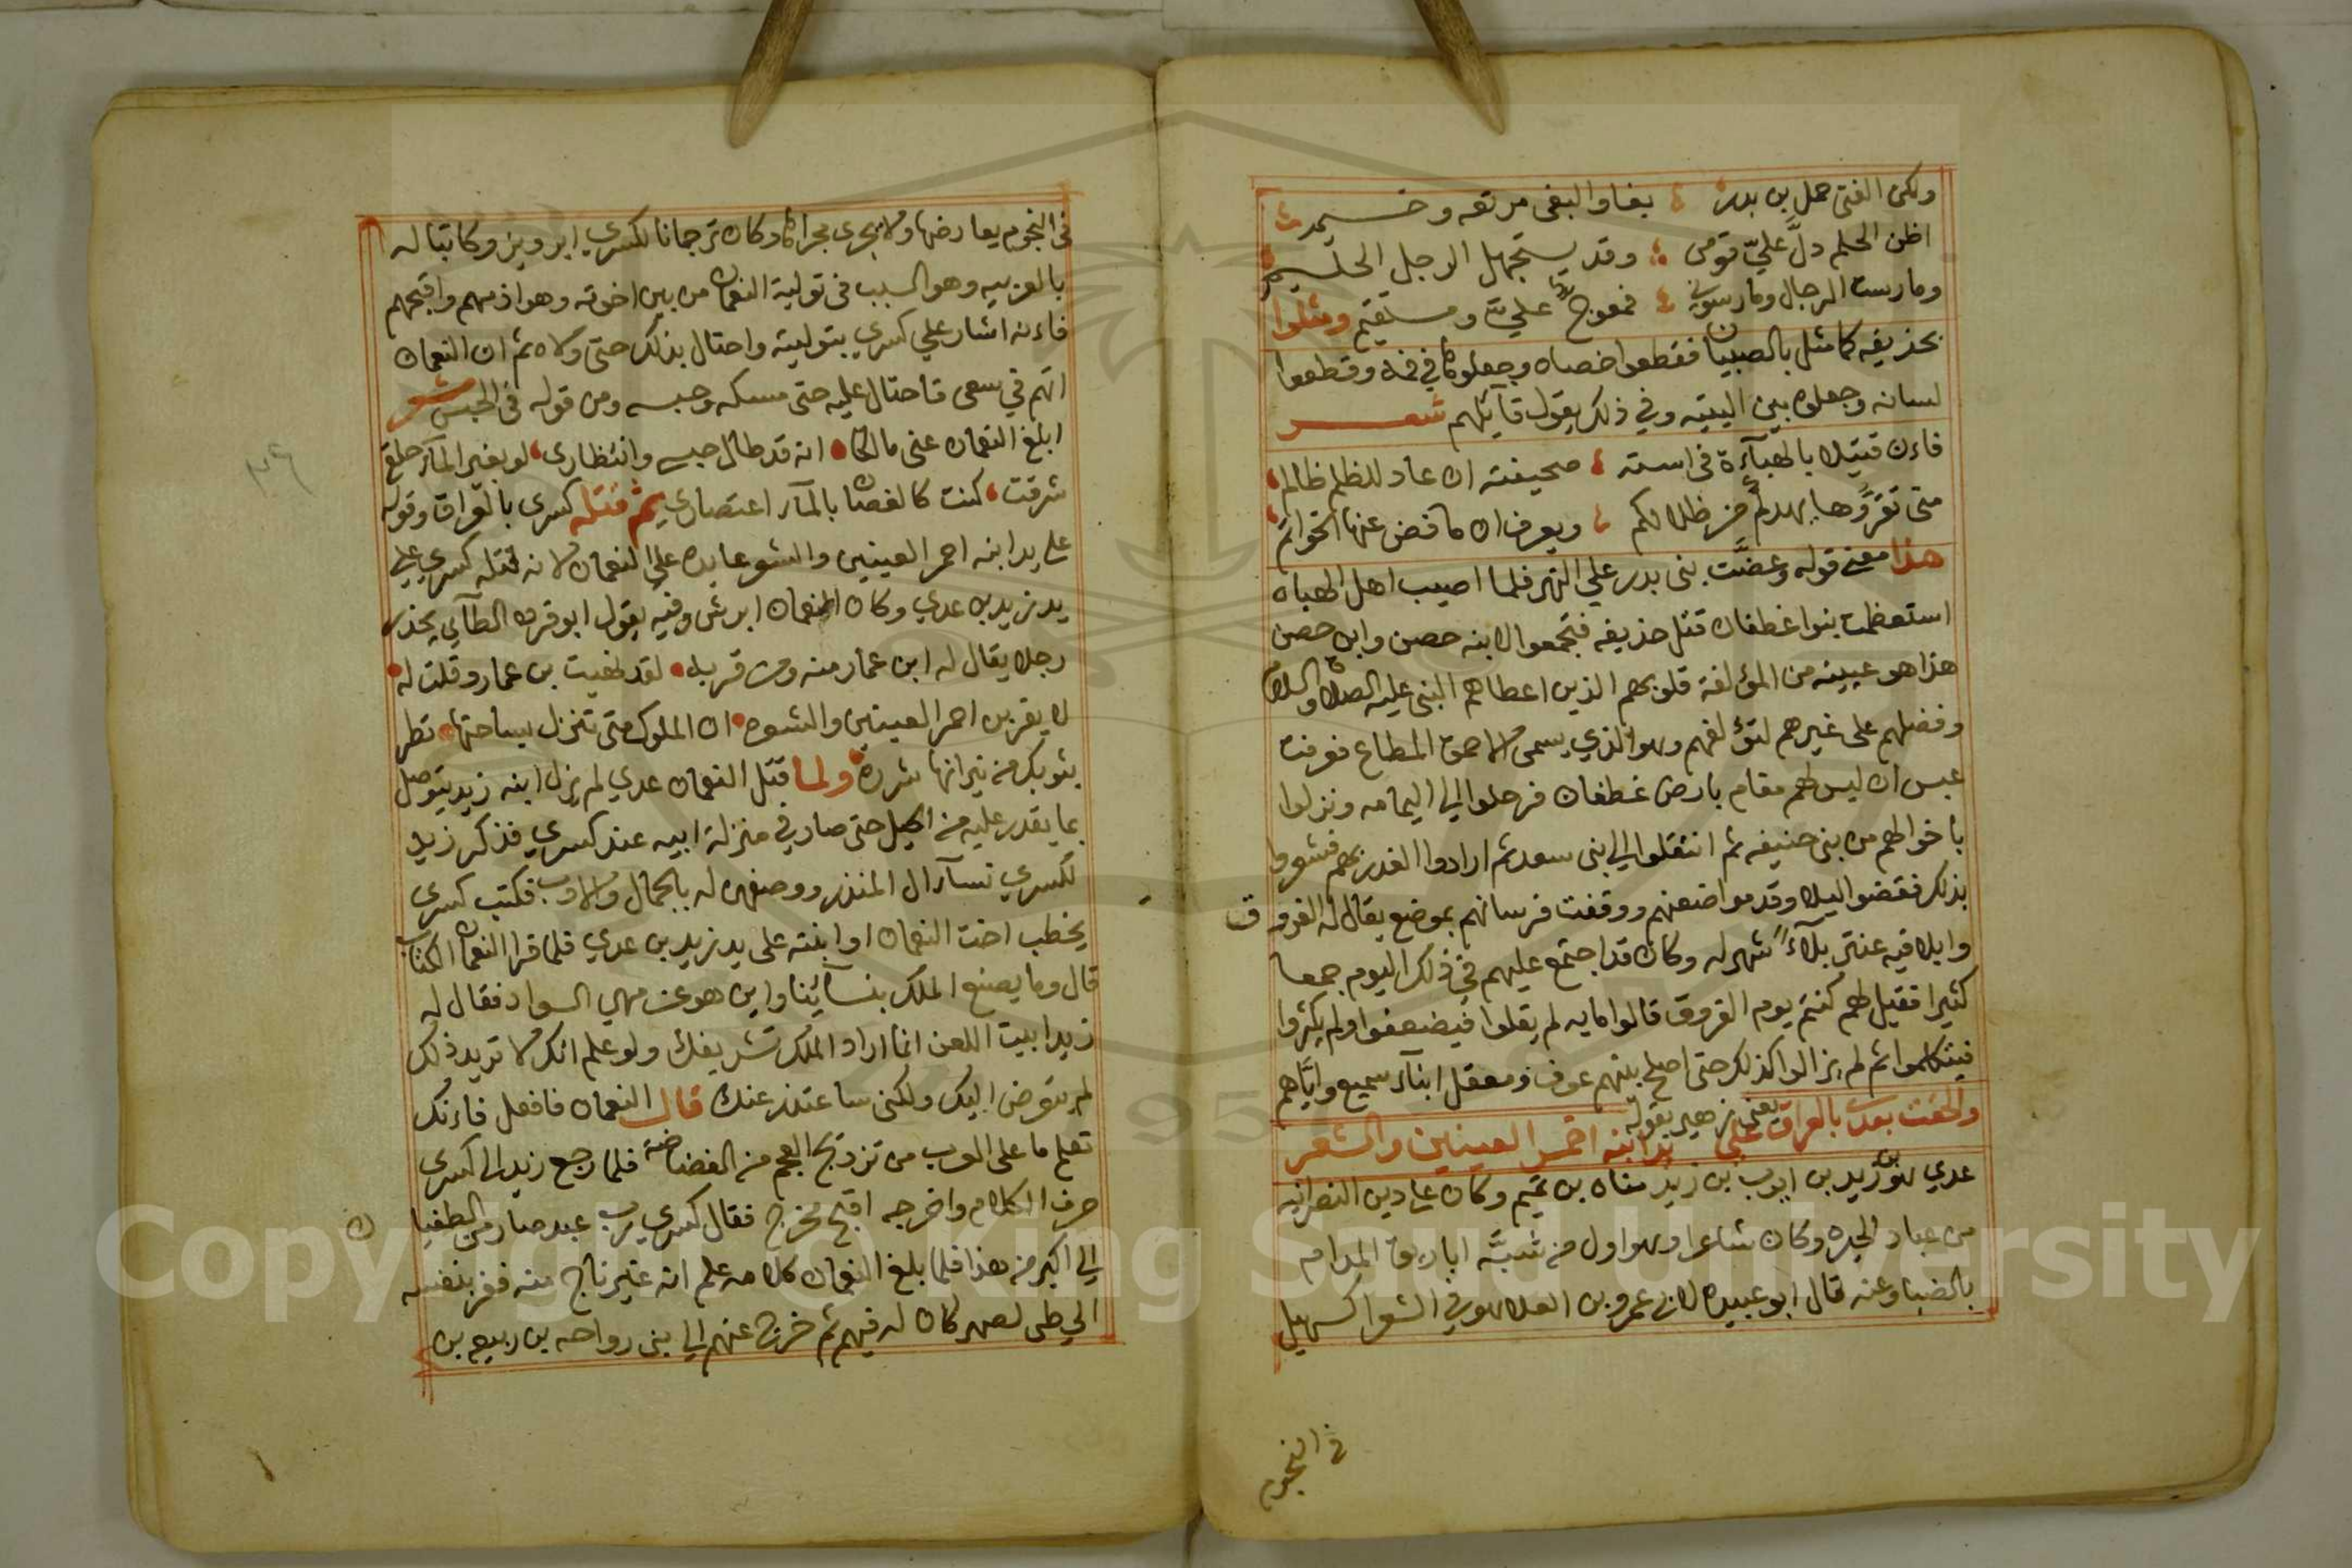 ولكن الفتى حمل بن بدر بغا والبغى مرتعه وخيم
اظن الحلم دلَّ عليّ قومى وقد يستجهل الرجل الحليم
ومارست الرجال ومارسونى فمعوج عليّ ومستقيم ومثلوا
بحذيفه كما مثل بالصبيان فقطعوا خصاه وجعلوها في فمه وقطعوا
لسانه وجعلوه بين اليتيه وفي ذلك يقول قآئلهم شعر
فاءن قتيلا بالهبآءة فى استه صحيفته ان عاد للظلم ظالم
متى تقرؤها يهدكم من ظلالكم ويعرف ان ما فض عنها الخواتم
هذا معنى قوله وعضَّت بنى بدر علي النهر فلما اصيب اهل الهباه
استعظمت بنوا غطفان قتل حذيفه فتجمعوا لابنه حصن وابن حصن
هذا هو عيينه من المؤلفة قلوبهم الذين اعطاهم النبى عليه الصلاة والسلام
وفضلهم على غيرهم لتؤلفهم وهو الذي يسمى الاحمق المطاع فعرفت
عبس ان ليس لهم مقام بارض غطفان فرحلوا الي اليمامه ونزلوا
باخوالهم من بنى حنيفه ثم انتقلوا الي بنى سعد ثم ارادوا الغدر بهم فشعروا
بذلك فقضوا ليلا وقدموا ضعنهم ووقفت فرسانهم بموضع يقال له الفروق
وابلا فيه عنتر بلآءً شهر له وكان قد اجتمع عليهم في ذلك اليوم جمعا
كثيرا فقيل لهم كنتم يوم الفروق قالوا مايه لم يقلوا فيضعفوا ولم يكثروا
فيتكلموا ثم لم يزالوا كذلك حتى اصلح بينهم عوف ومعقل ابنآء سميع واياهم
يعنى زهير بقوله
والحقت بعدى بالعراق على يد ابنه احمر العينين والشعر
عدي هو بن زيد بن ايوب بن زيد مناه بن تميم وكان على دين النصرانيه
من عباد الحيره وكان شاعرا وهو اول من شبَّه اباريق المدام
بالضبا وعنه قال ابو عبيده لان عمرو بن العلا هو في الشعرا كسهيل
في النجوم
فى النجوم يعارضها ولا يجرى مجراها وكان ترجمانا لكسري ابرويز وكاتبا له
بالعربيه وهو السبب فى تولية النعمان من بين اخوته وهو اذمهم واقبحهم
فاءنه اشار علي كسري بتوليته واحتال بذلك حتى ولاه ثم ان النعمان
اتهم في سعى فاحتال عليه حتى مسكه وحبسه ومن قوله فى الحبس شعر
ابلغ النعمان عنى مالكا انه قد طال حبسى وانتظارى لو بغير المآء حلقى
شرقت كنت كالغصان بالمآء اعتصارى ثم قتله كسرى بالعراق وقوله
على يد ابنه احمر العينين والشعر عايده علي النعمان لانه قتله كسري على
يد زيد بن عدي وكان النعمان ابرش وفيه يقول ابو قرده الطآئي يحذر
رجلا يقال له ابن عمار منه ومن قربه لقد نهيت بن عمار وقلت له
لا يقربن احمر العينين والشعره ان الملوك متى تنزل بساحتها تطر
بثوبك من نيرانها شرره ولما قتل النعمان عدي لم يزل ابنه زيد يتوصل
بما يقدر عليه من الحيل حتى صار في منزلة ابيه عند كسري فذكر زيد
لكسري نسآء ال المنذر ووصفهن له بالجمال والادب فكتب كسرى
يخطب اخت النعمان او ابنته على يد زيد بن عدي فلما قرا النعمان الكتاب
قال وما يصنع الملك بنسآئنا واين هو عن مهى السواد فقال له
زيد ابيت اللعن انما اراد الملك تشريفك ولو علم انك لا تريد ذلك
لم يتعرض اليك ولكنى ساعتذر عنك قال النعمان فافعل فاءنك
تعلم ما على العرب من تزويج العجم من الغضاضة فلما رجع زيد الى كسرى
حرف الكلام واخرجه اقبح مخرج فقال كسري رب عبد صار من الطغيان
الي اكبر من هذا فلما بلغ النعمان كلامه علم انه غير ناج منه ففر بنفسه
الى طى لصهر كان له فيهم ثم خرج عنهم الي بنى رواحه بن ربيعه بن
Copyright © King Saud University